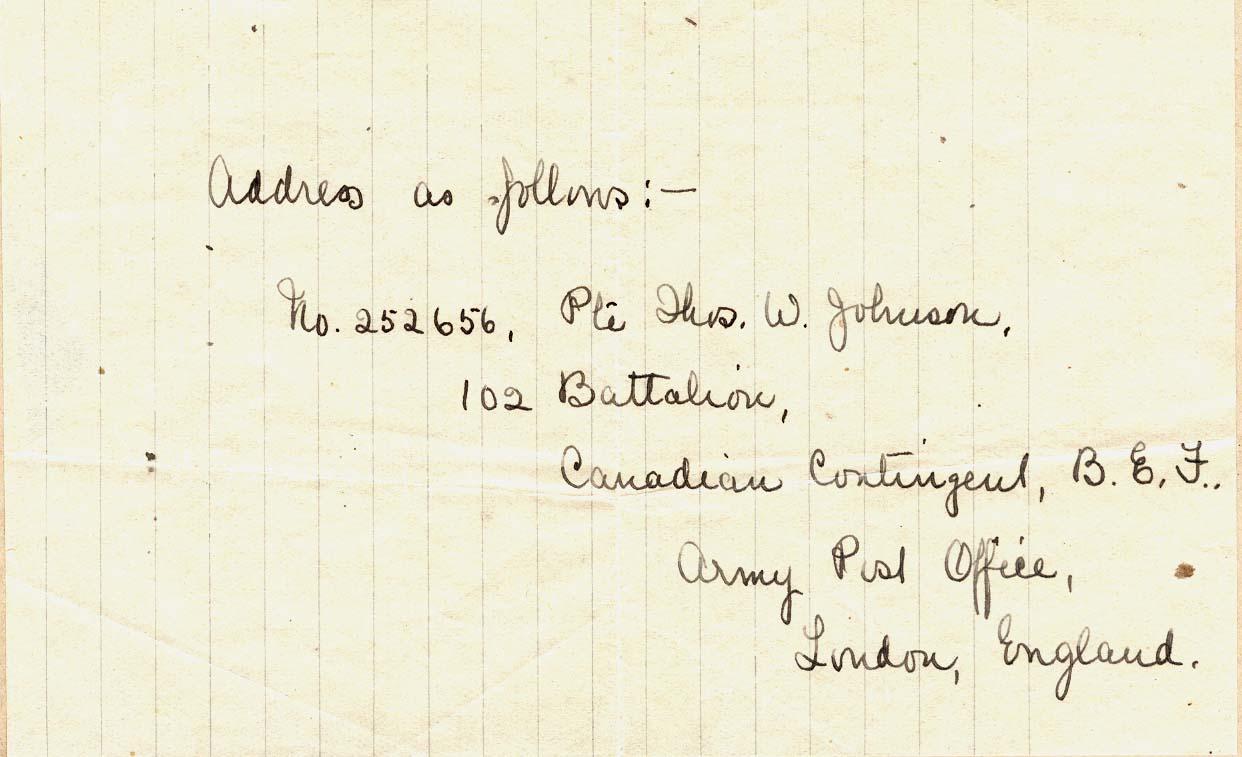 Address as follows:—
No. 252656, Pte Thos. W. Johnson,
102 Battalion,
Canadian Contingent, B. E. F..
Army Post Office,
London, England.